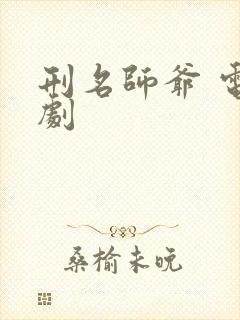 刑名師爺 電
劇
桑榆未晚